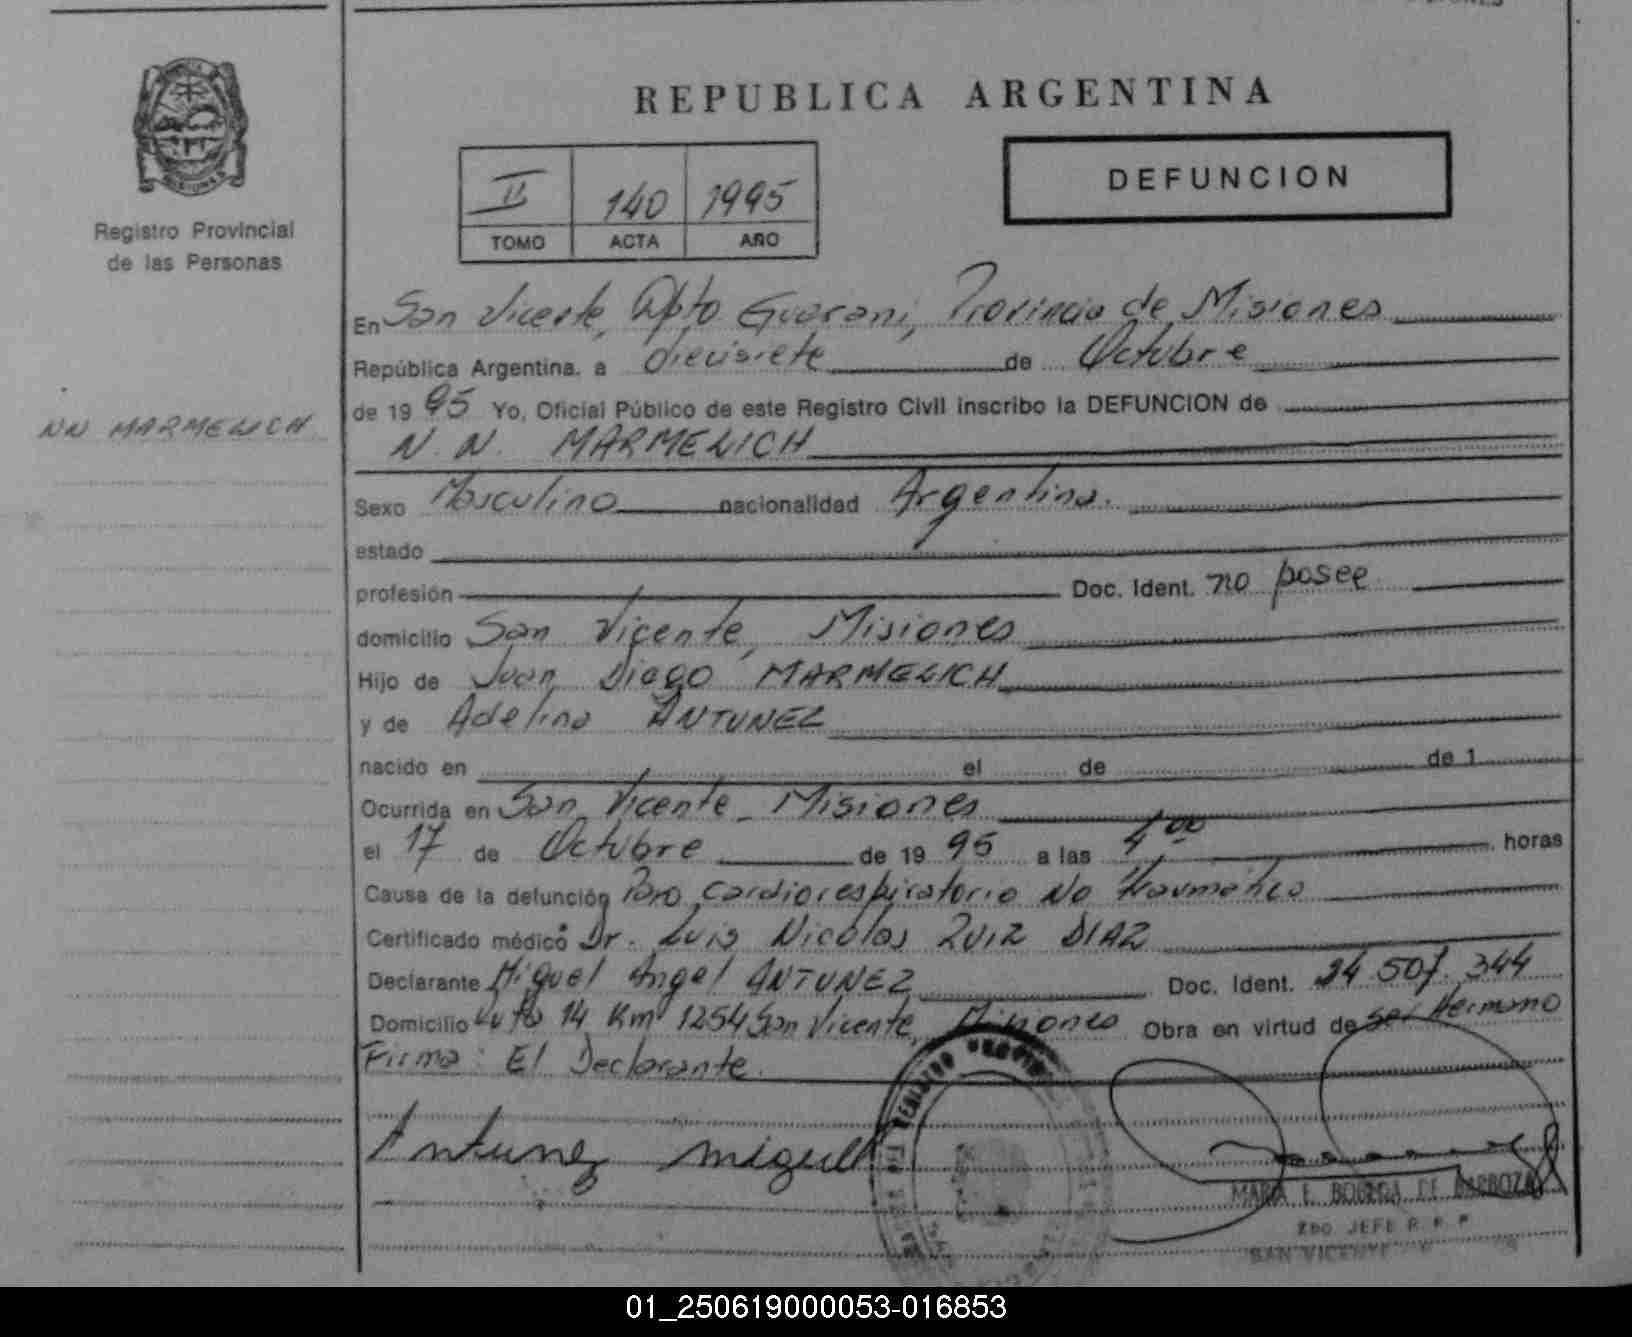 REPUBLICA ARGENTINA
DEFUNCION
II 140 1995
TOMO ACTA AÑO
Registro Provincial
de las Personas
NN MARMELICH
En San Vicente, Dpto Guarani, Provincia de Misiones
República Argentina, a diecisiete de Octubre
de 19 95 Yo, Oficial Público de este Registro Civil inscribo la DEFUNCION de
N. N. MARMELICH
Sexo Masculino nacionalidad Argentina.
estado
profesión Doc. Ident. no posee
domicilio San Vicente, Misiones
Hijo de Juan Diego MARMELICH
y de Adelina ANTUNEZ
nacido en el de de 1
Ocurrida en San Vicente - Misiones
el 17 de Octubre de 19 95 a las 4 00 horas
Causa de la defunción Paro cardiorespiratorio No traumatico
Certificado médico Dr. Luis Nicolas RUIZ DIAZ
Declarante Miguel Angel ANTUNEZ Doc. Ident. 24.507.344
Domicilio Ruta 14 Km 1254 San Vicente, Misiones Obra en virtud de ser Hermano
Firma: El Declarante.
Antunez Miguel
MARIA E. DE BARBOZA
2DO JEFE R. P. P.
SAN VICENTE
01_250619000053-016853